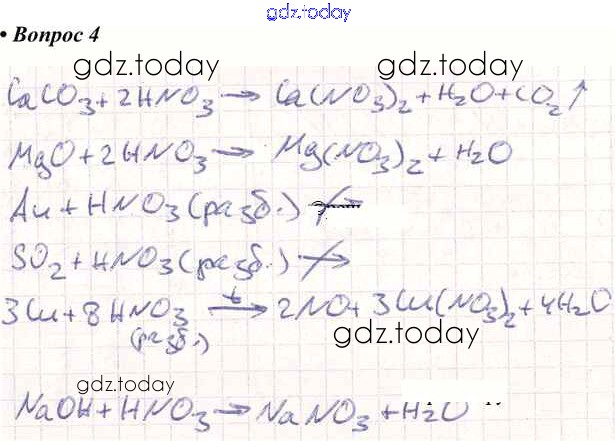 gdz.today
• Вопрос 4
gdz.today gdz.today
CaCO3 + 2HNO3 → Ca(NO3)2 + H2O + CO2↑
MgO + 2HNO3 → Mg(NO3)2 + H2O
Au + HNO3 (разб.) ↛
SO2 + HNO3 (разб.) ↛
3Cu + 8HNO3 (разб.) t→ 2NO + 3Cu(NO3)2 + 4H2O
gdz.today
gdz.today
NaOH + HNO3 → NaNO3 + H2O